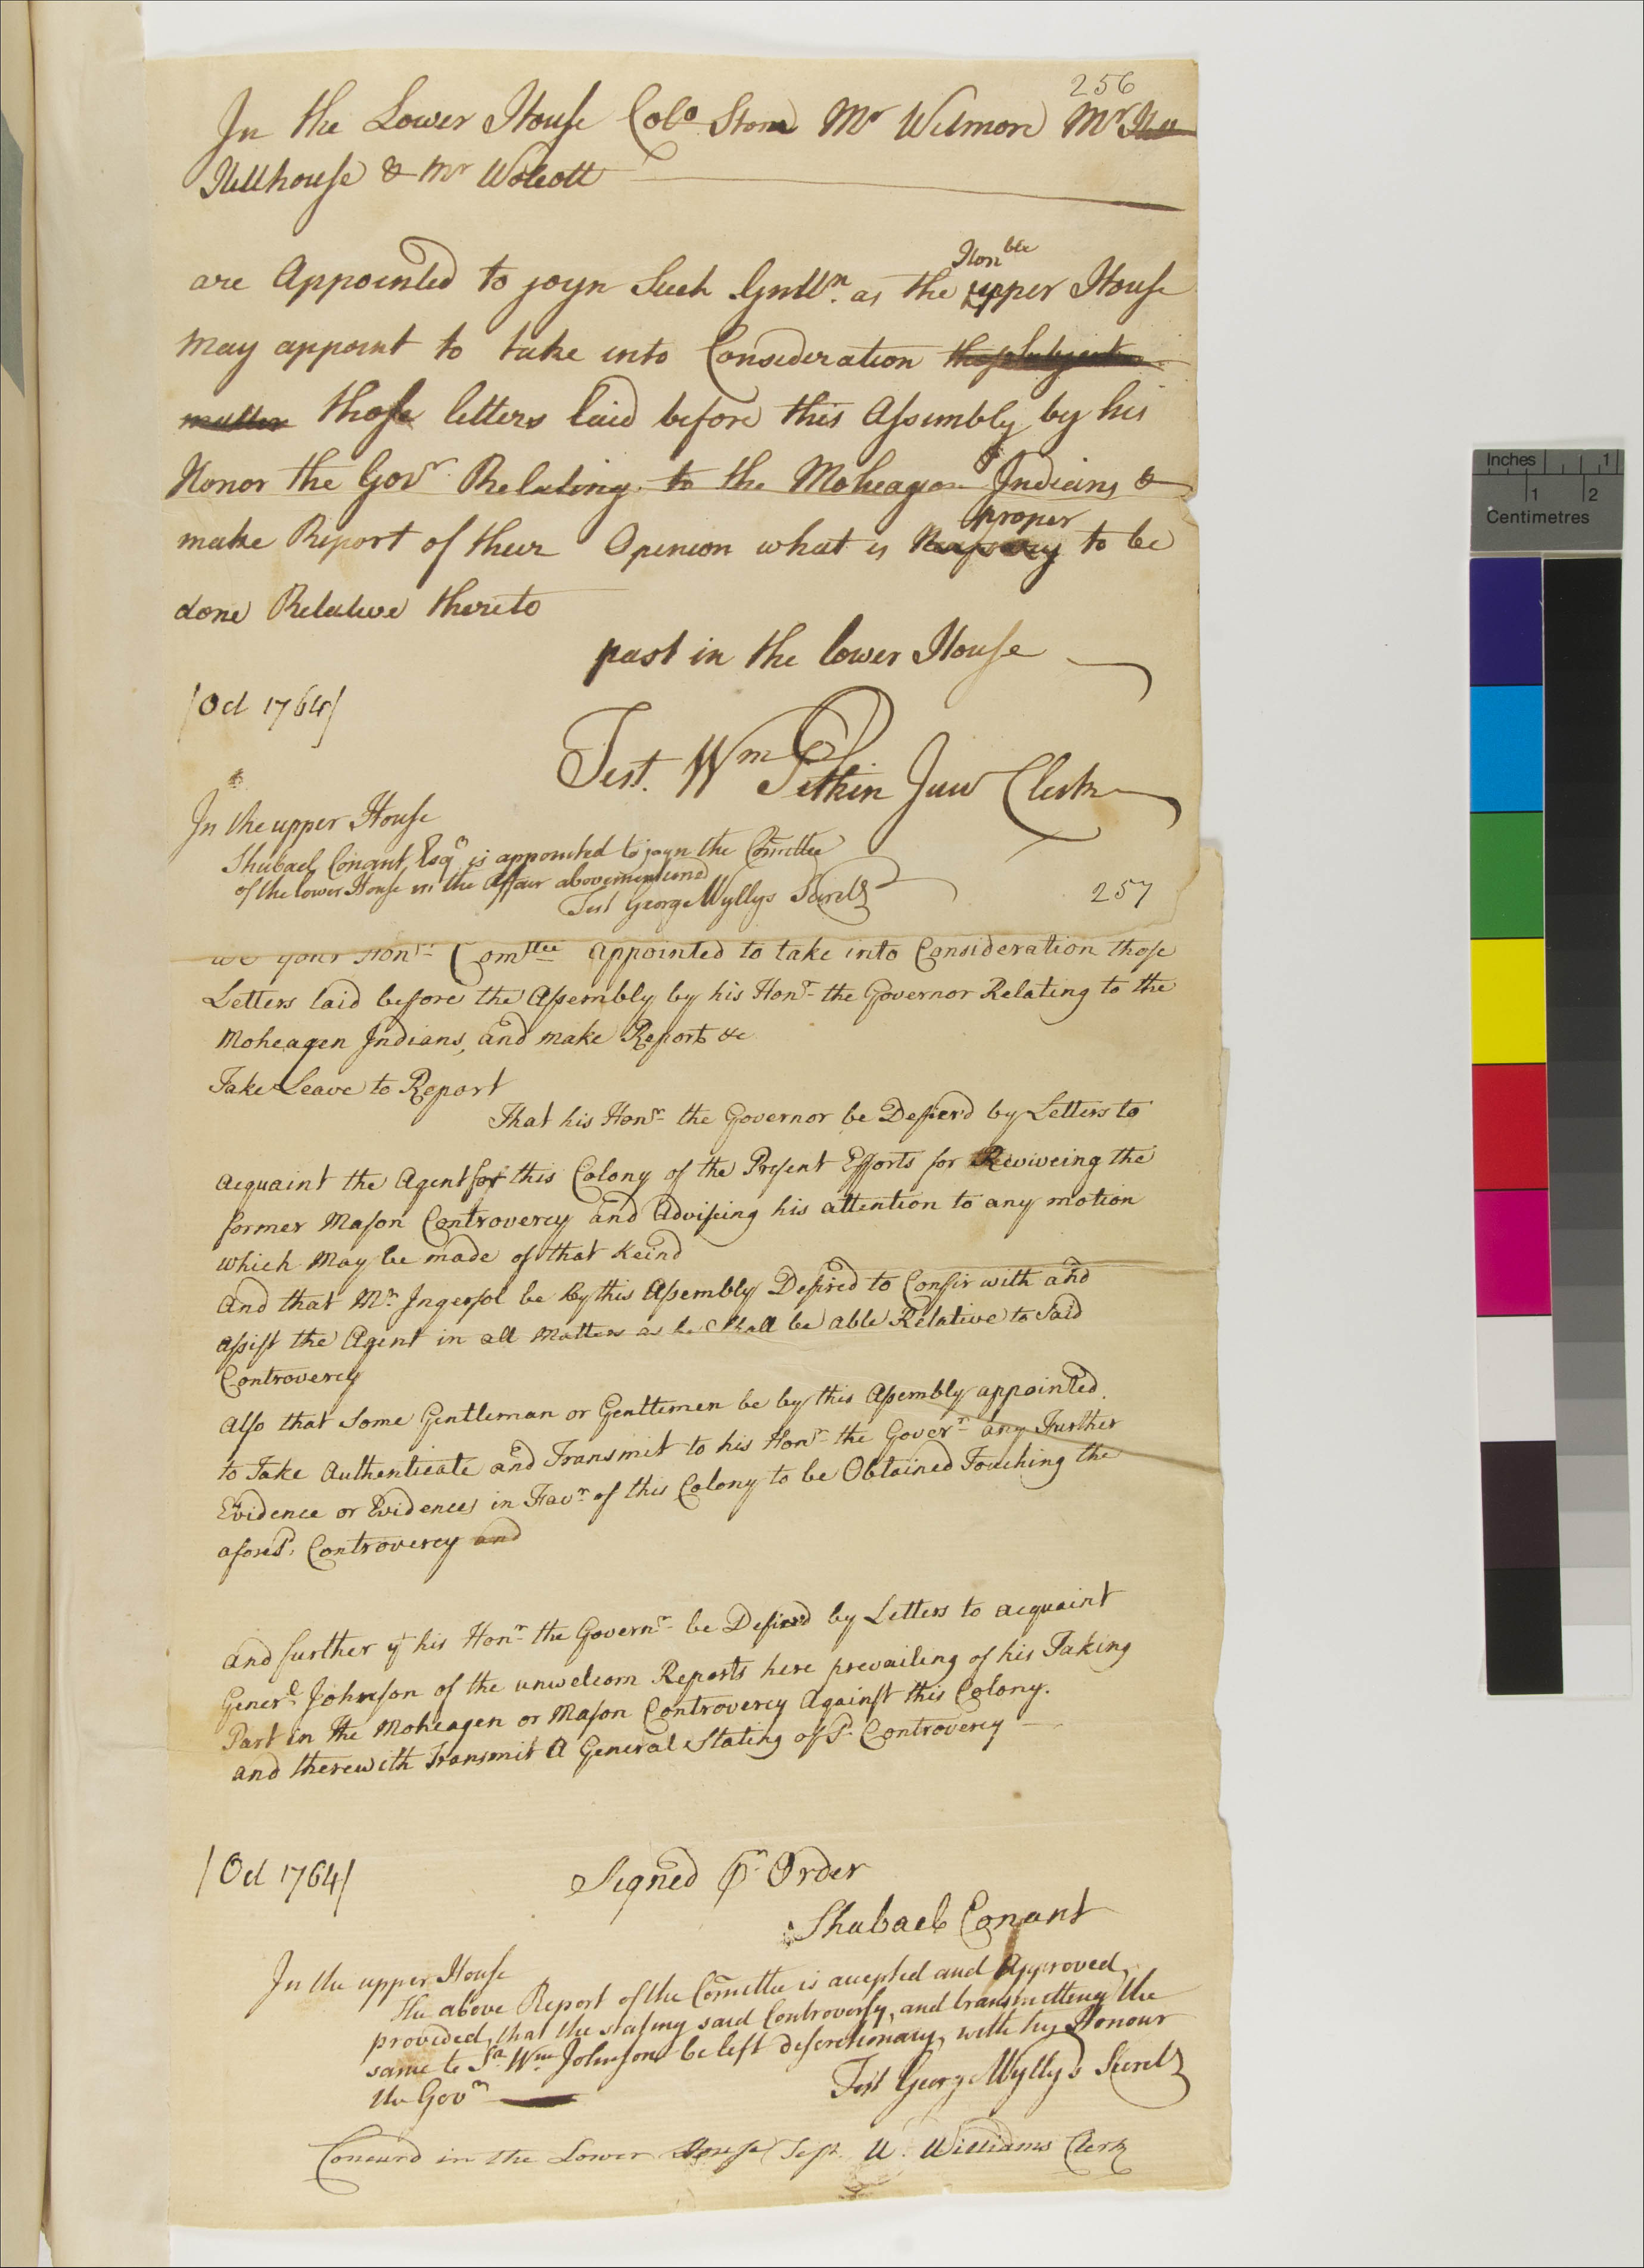 256
In the Lower House Colo Stone Mr Wilmore Mr
Hillhouse & Mr Wolcott
are Appointed to joyn Such Gentlln. as the Honble upper House
May appoint to take into Consideration those Subject
matter those letters laid before this Assembly by his
Honor the Govr Relating to the Moheagan Indians &
make Report of their Opinion what is Nessary proper to be
done Relative thereto
past in the lower House
/Oct 1764/
Test. Wm Pitkin Junr Clerk
In the upper House
Shubael Conant, Esqr is appointed to joyn the Comittee
of the lower House in the Affair abovementiond
Test George Wyllys Secrety
257
We your Honrs Comttee appointed to take into Consideration those
Letters laid before the Assembly by his Honr the Governor Relating to the
Moheagen Indians, and make Report &c
Take Leave to Report
That his Honr the Governor be Desier'd by Letters to
acquaint the Agent for this Colony of the Present Efforts for Reviveing the
former Mason Controvercy and Adviseing his attention to any motion
which May be made of that Keind
And that Mr Ingersol be by this Assembly Desired to Confir with and
assist the Agent in all Matters as he Shall be able Relative to Said
Controvercy
Also that Some Gentleman or Gentlemen be by this Assembly appointed
to Take Authenticate and Transmit to his Honr the Goverr any Further
Evidence or Evidences in Favr of this Colony to be Obtained Touching the
aforesd. Controvercy and
and further yt his Honr the Governr be Desierd by Letters to acquaint
Generl Johnson of the unwelcom Reports here prevailing of his Taking
Part in the Moheagen or Mason Controvercy Against this Colony.
and therewith Transmit A General Stating of sd Controvercy
/Oct 1764/
Signed pr Order
Shubael Conant
In the upper House
The above Report of the Comittee is accepted and Approved,
provided, that the stating said Controversy, and transmitting the
same to Sr Wm Johnson be left discretionary, with his Honour
the Govr
Test George Wyllys Secrety
Concurd in the Lower House Test. W. Williams Clerk
Inches 1
1 2
Centimetres